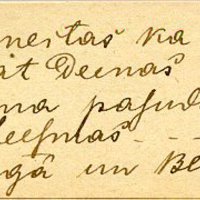 nestas ka
āt Deenas
ma pasud
leesmas - - -
gā un Be